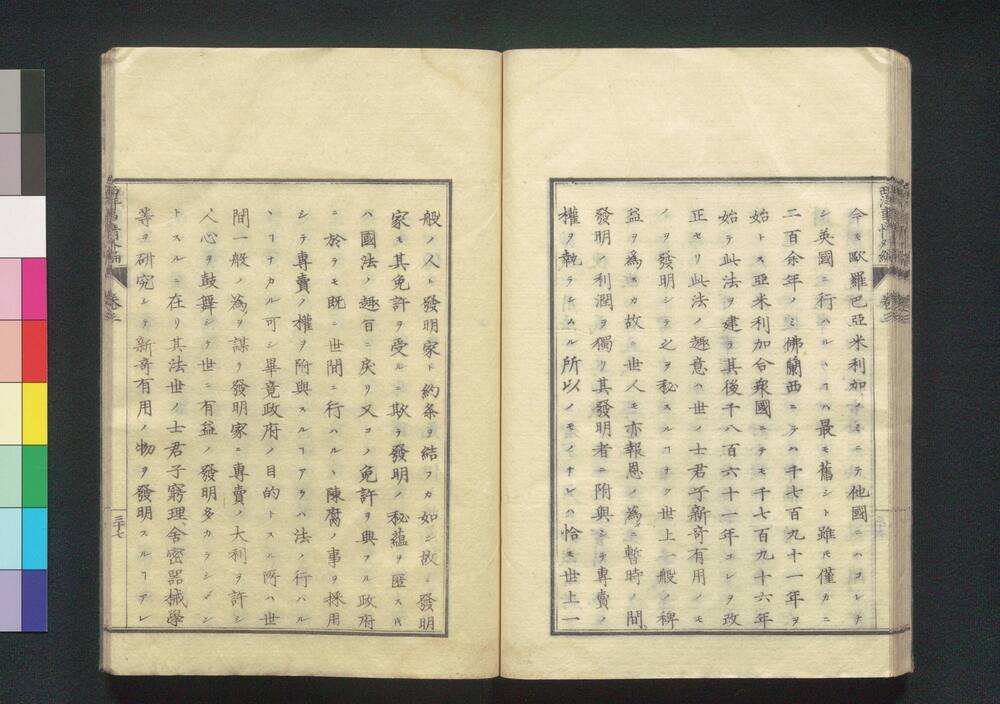 今モ歐羅巴亞米利加ノミニテ他國ニハコレナ
シ英國ニ行ハルヽヿハ最モ舊シト雖𪜈僅カニ
二百余年ノミ佛蘭西ニテハ千七百九十一年ヲ
始トス亞米利加合衆國ニテモ千七百九十六年
始テ此法ヲ建テ其後千八百六十一年コレヲ改
正セリ此法ノ趣意ハ世ノ士君子新奇有用ノモ
ノヲ發明シテ之ヲ秘スルヿナク世上一般ノ裨
益ヲ為スカ故ニ世人モ亦報恩ノ為ニ暫時ノ間
發明ノ利潤ヲ獨リ其發明者ニ附與シテ專賣ノ
權ヲ執ラシムル所以ノモノナレハ恰モ世上一
般ノ人ト發明家ト約条ヲ結フカ如シ故ニ發明
家モ其免許ヲ受ルニ欺テ發明ノ秘蘊ヲ匿ス𪜈
ハ國法ノ趣旨ニ戻リ又コノ免許ヲ與フル政府
ニ於テモ既ニ世間ニ行ハルヽ陳腐ノ事ヲ採用
シテ專賣ノ權ヲ附與スルヿアラハ法ノ行ハル
ヽヿナカル可シ畢竟政府ノ目的トスル所ハ世
間一般ノ為ヲ謀リ發明家ニ專賣ノ大利ヲ許シ
人心ヲ鼓舞シテ世ニ有益ノ發明多カラシメン
トスルニ在リ其法世ノ士君子窮理舎密器械學
等ヲ研究シテ新奇有用ノ物ヲ發明スルヿアレ
西洋事情外編
卷三
三十七